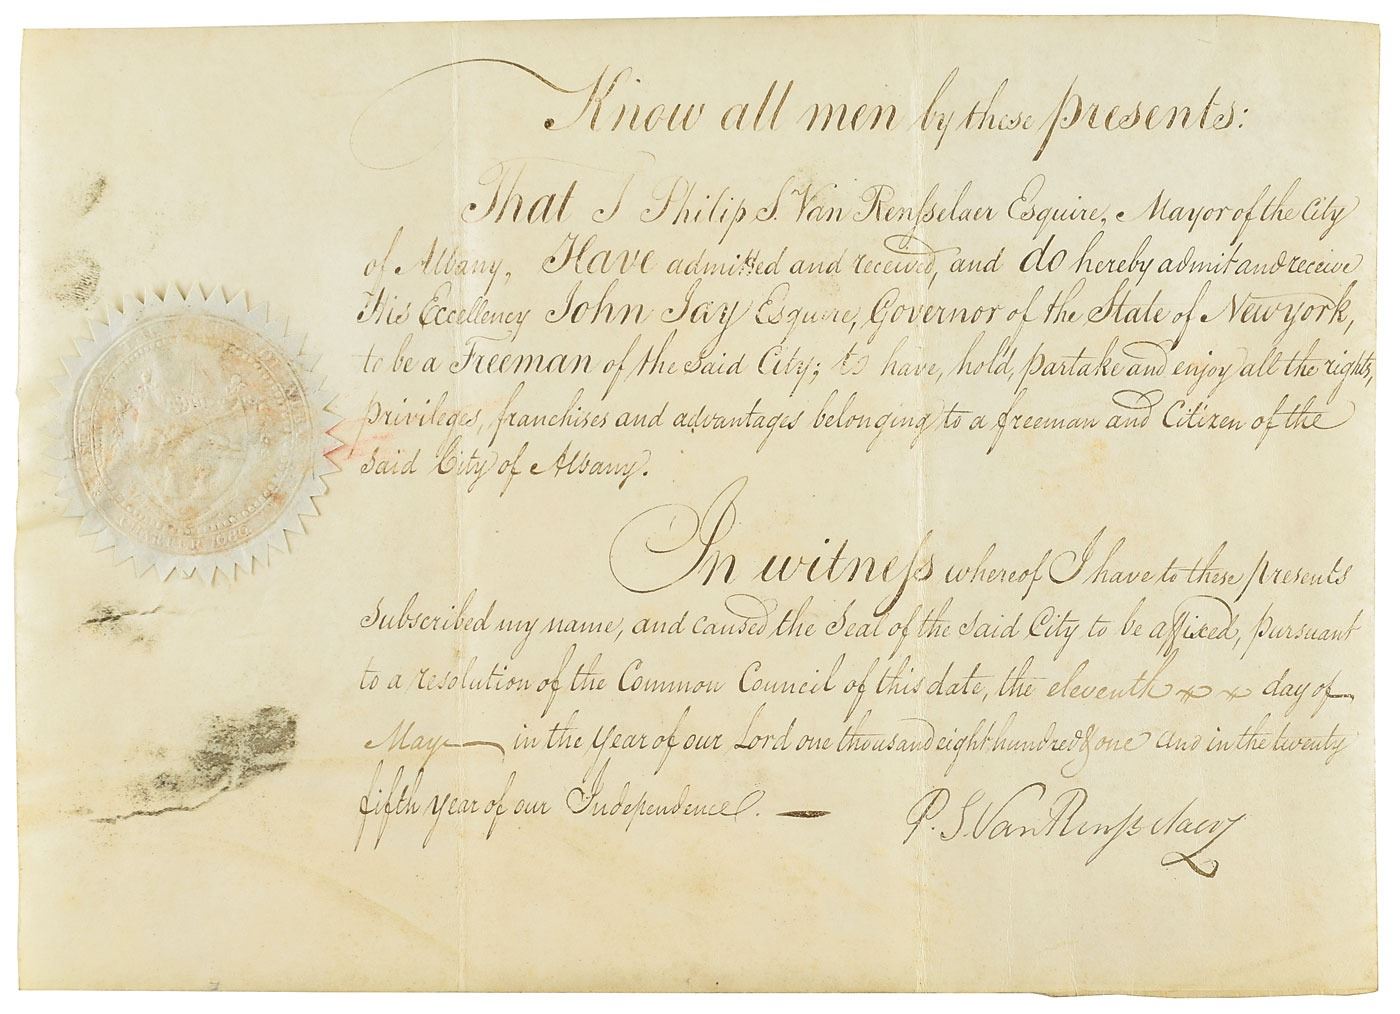 Know all men by these presents:
That I Philip S. Van Rensselaer Esquire, Mayor of the City
of Albany, Have admitted and received, and do hereby admit and receive
His Eccellency John Jay Esquire, Governor of the State of New york,
to be a Freeman of the said City; to have, hold, partake and enjoy all the rights,
privileges, franchises and advantages belonging to a freeman and Citizen of the
said City of Albany.
In witness whereof I have to these presents
subscribed my name, and caused the Seal of the said City to be affixed, pursuant
to a resolution of the Common Council of this date, the eleventh day of
May in the year of our Lord one thousand eight hundred & one and in the twenty
fifth year of our Independence. —
P. S. Van Rensselaer
CHARTER 1686